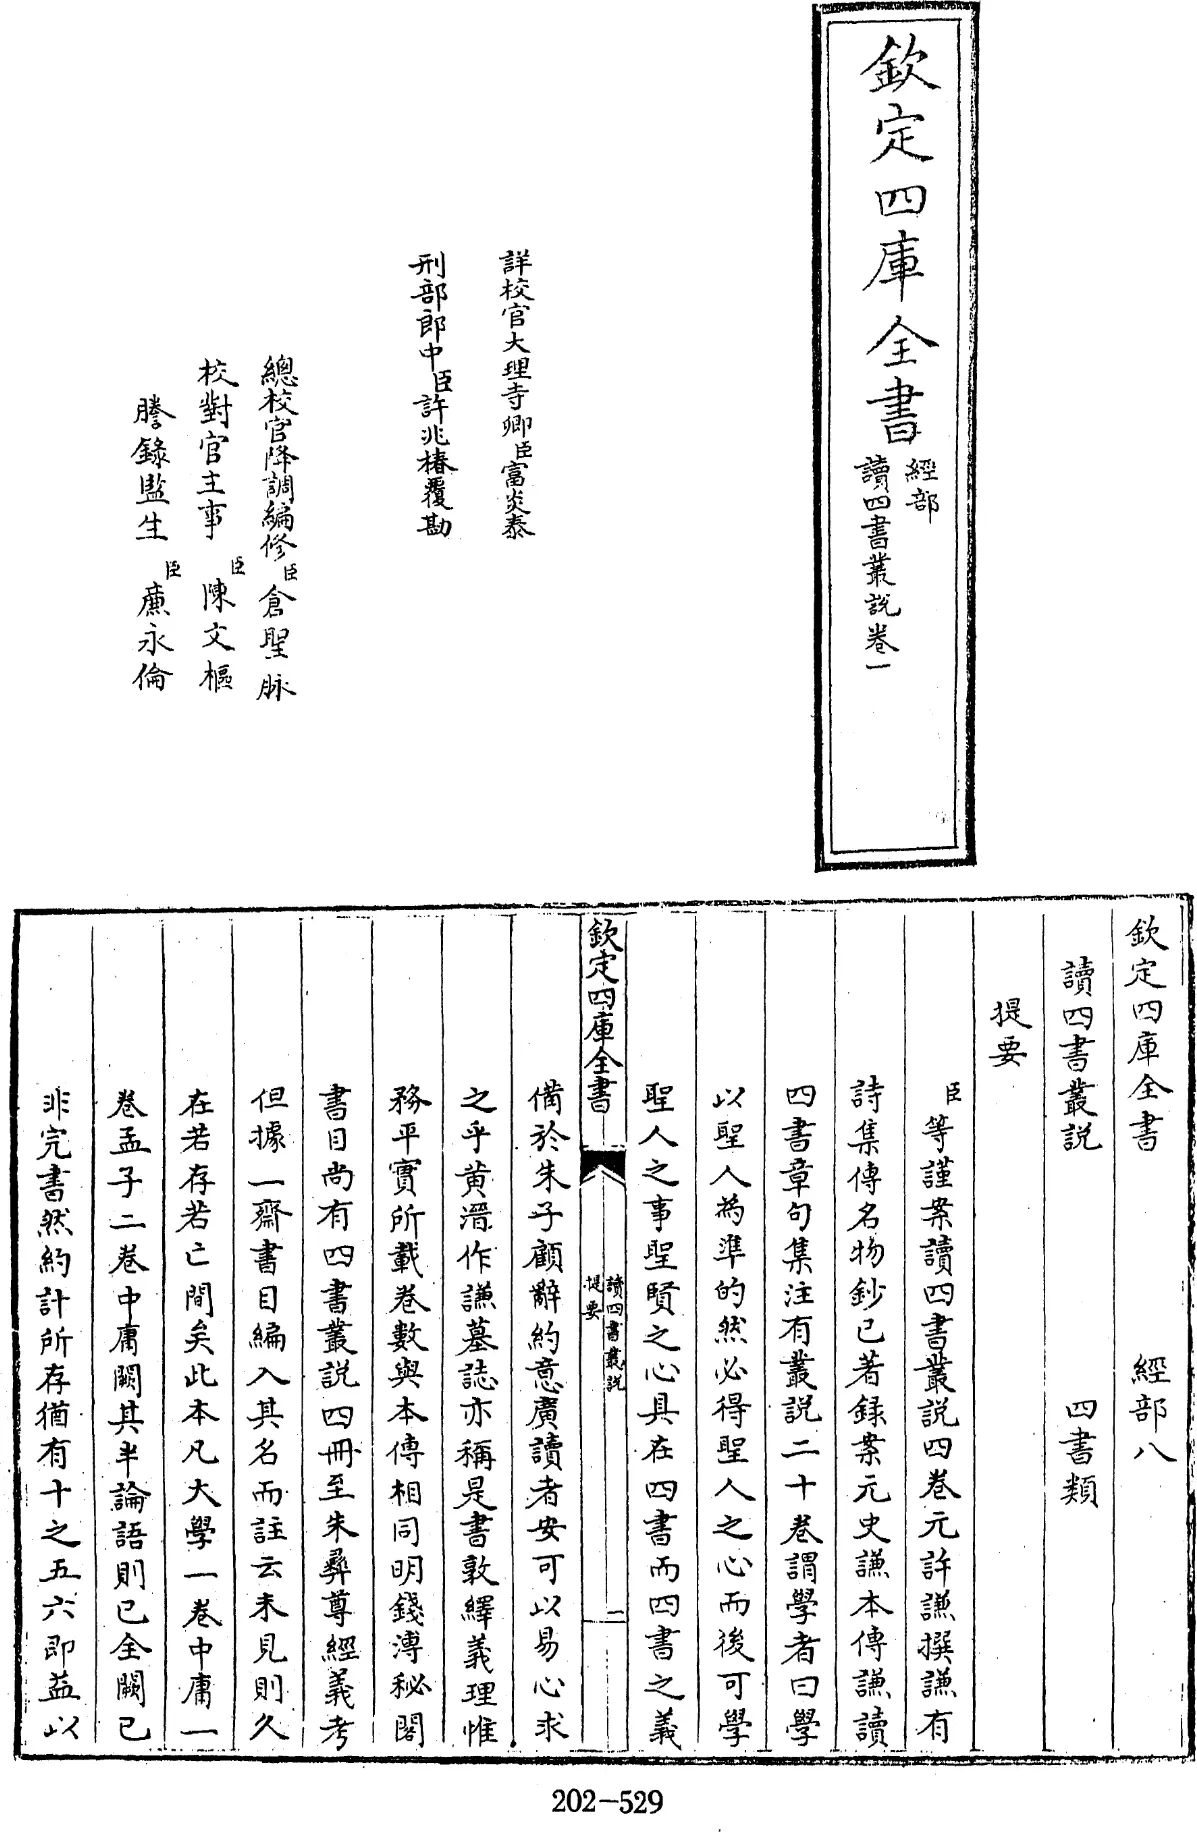 欽定四庫全書
經部
讀四書叢說卷一
詳校官大理寺卿臣富炎泰
刑部郎中臣許兆椿覆勘
總校官降調編修臣倉聖脉
校對官主事臣陳文樞
謄錄監生臣廉永倫
欽定四庫全書 經部八
讀四書叢說 四書類
提要
臣等謹案讀四書叢說四卷元許謙撰謙有
詩集傳名物鈔已著録案元史謙本傳謙讀
四書章句集注有叢說二十卷謂學者曰學
以聖人為準的然必得聖人之心而後可學
聖人之事聖賢之心具在四書而四書之義
欽定四庫全書
讀四書叢說
提要
二
備於朱子顧辭約意廣讀者安可以易心求
之乎黄溍作謙墓誌亦稱是書敦繹義理惟
務平實所載卷數與本傳相同明錢溥秘閣
書目尚有四書叢說四冊至朱彞尊經義考
但據一齋書目編入其名而註云未見則久
在若存若亡間矣此本凡大學一卷中庸一
卷孟子二卷中庸闕其半論語則已全闕已
非完書然約計所存猶有十之五六即益以
202-529